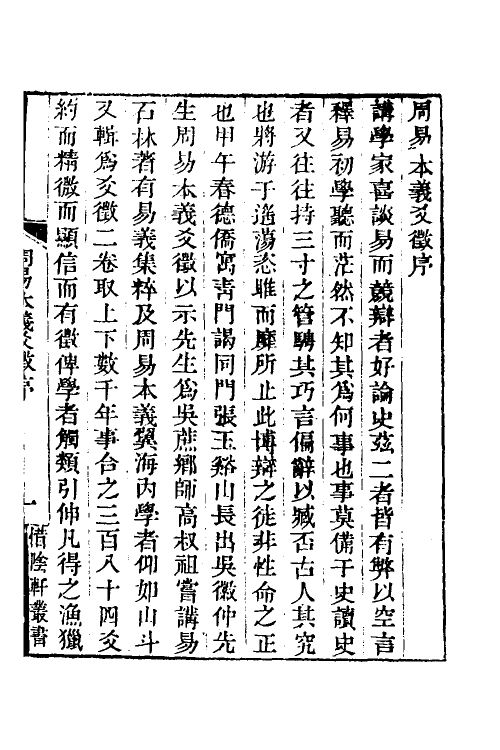 周易本義爻徵序
講學家喜談易而競辯者好論史茲二者皆有弊以空言
釋易初學聽而茫然不知其爲何事也事莫備于史讀史
者又往往持三寸之管騁其巧言偏辭以臧否古人其究
也將游于遙蕩恣睢而靡所止此博辯之徒非性命之正
也甲午春德僑寓靑門謁同門張玉谿山長出吳徽仲先
生周易本義爻徵以示先生爲吳蔗鄉師高叔祖嘗講易
石林著有易義集粹及周易本義翼海內學者仰如山斗
又輯爲爻徵二卷取上下數千年事合之三百八十四爻
約而精微而顯信而有徵俾學者觸類引伸凡得之漁獵
周易本義爻徵序
一
惜陰軒叢書